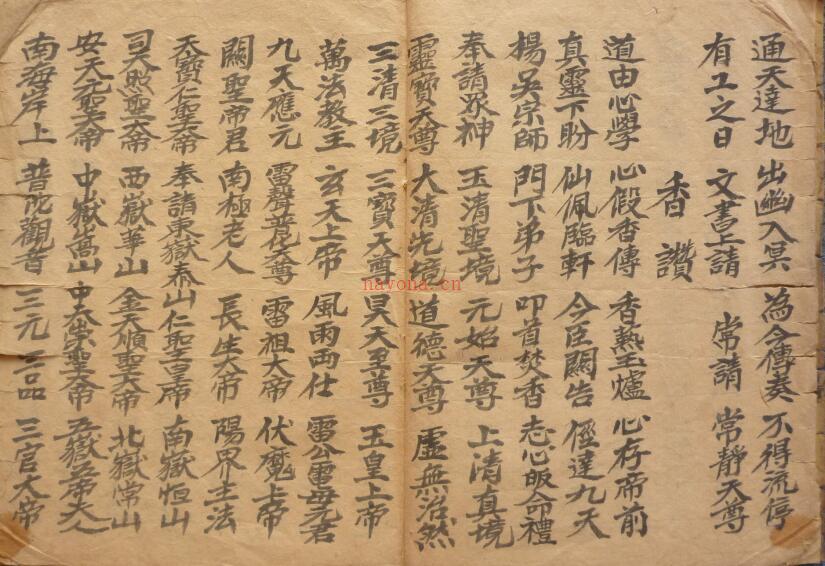 通天達地 出幽入冥 為今傳奏 不得流停
有工之日 文書上請 常請 常靜天尊
香讚
道由心學 心假香傳 香爇玉爐 心存帝前
真靈下盼 仙佩臨軒 今臣關告 徑達九天
楊吳宗師 門下弟子 叩首焚香 志心皈命禮
奉請眾神 玉清聖境 元始天尊 上清真境
靈寶天尊 大清先境 道德天尊 虛無浩然
三清三境 三寶天尊 昊天至尊 玉皇上帝
萬法教主 玄天上帝 風雨兩仕 雷公電母元君
九天應元 雷聲普化天尊 雷祖大帝 伏魔上帝
關聖帝君 南極老人 長生大帝 陽界主法
天寶仁聖大帝 奉請東嶽泰山 仁聖皇帝 南嶽恒山
司天照聖大帝 西嶽華山 金天順聖大帝 北嶽常山
安天元聖大帝 中嶽嵩山 中天崇聖大帝 五嶽五帝夫人
南海岸上 普陀觀音 三元三品 三官大帝
nayona.cn